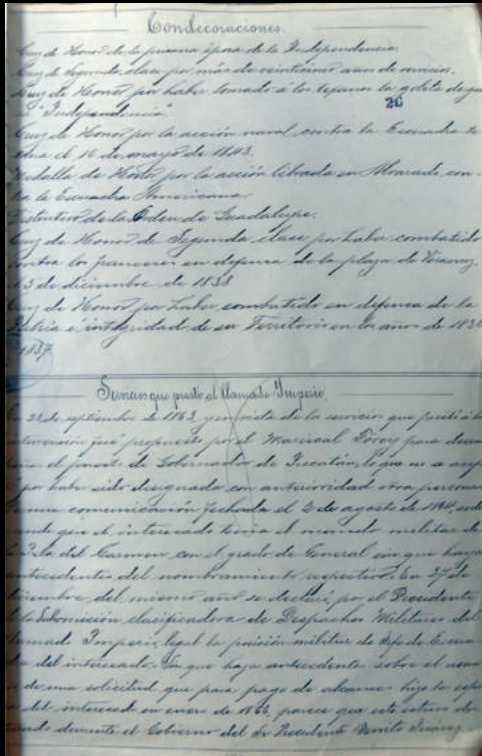 Condecoraciones.
Cruz de Honor de la primera época de la Independencia.
Cruz de Segunda clase por más de veinticinco años de servicios.
Cruz de Honor por haber tomado a los tejanos la goleta de gue
"Independencia"
26
Cruz de Honor por la acción naval contra la Escuadra te
el 16 de mayo de 1843.
Medalla de Honor por la acción librada en Alvarado con
la Escuadra Americana.
Distintivo de la Orden de Guadalupe.
Cruz de Honor de Segunda clase por haber combatido
contra los franceses en defensa de la plaza de Veracruz,
5 de diciembre de 1838
Cruz de Honor por haber combatido en defensa de la
Patria e integridad de su Territorio en los años de 1836
1837
Servicios que prestó al llamado Imperio.
En 21 de septiembre de 1863, y en vista de los servicios que prestó a la
intervención fué propuesto por el Mariscal Forey para
el puesto de Gobernador de Yucatán, lo que no
por haber sido designada con anterioridad otra persona
una comunicación fechada el 2 de agosto de 1864
que el interesado tenía el mando militar de
Isla del Carmen con el grado de General sin que haya
antecedentes del nombramiento respectivo. En 27 de
diciembre del mismo año se declaró por el Presidente
la Subcomisión clasificadora de Despachos Militares del
llamado Imperio, legal la posición militar de Jefe de
del interesado. Sin que haya antecedente sobre el
de una solicitud que para pago de alcances hizo la
del interesado en enero de 1866, parece que este estuvo
durante el Gobierno del Sr Presidente Benito Juárez